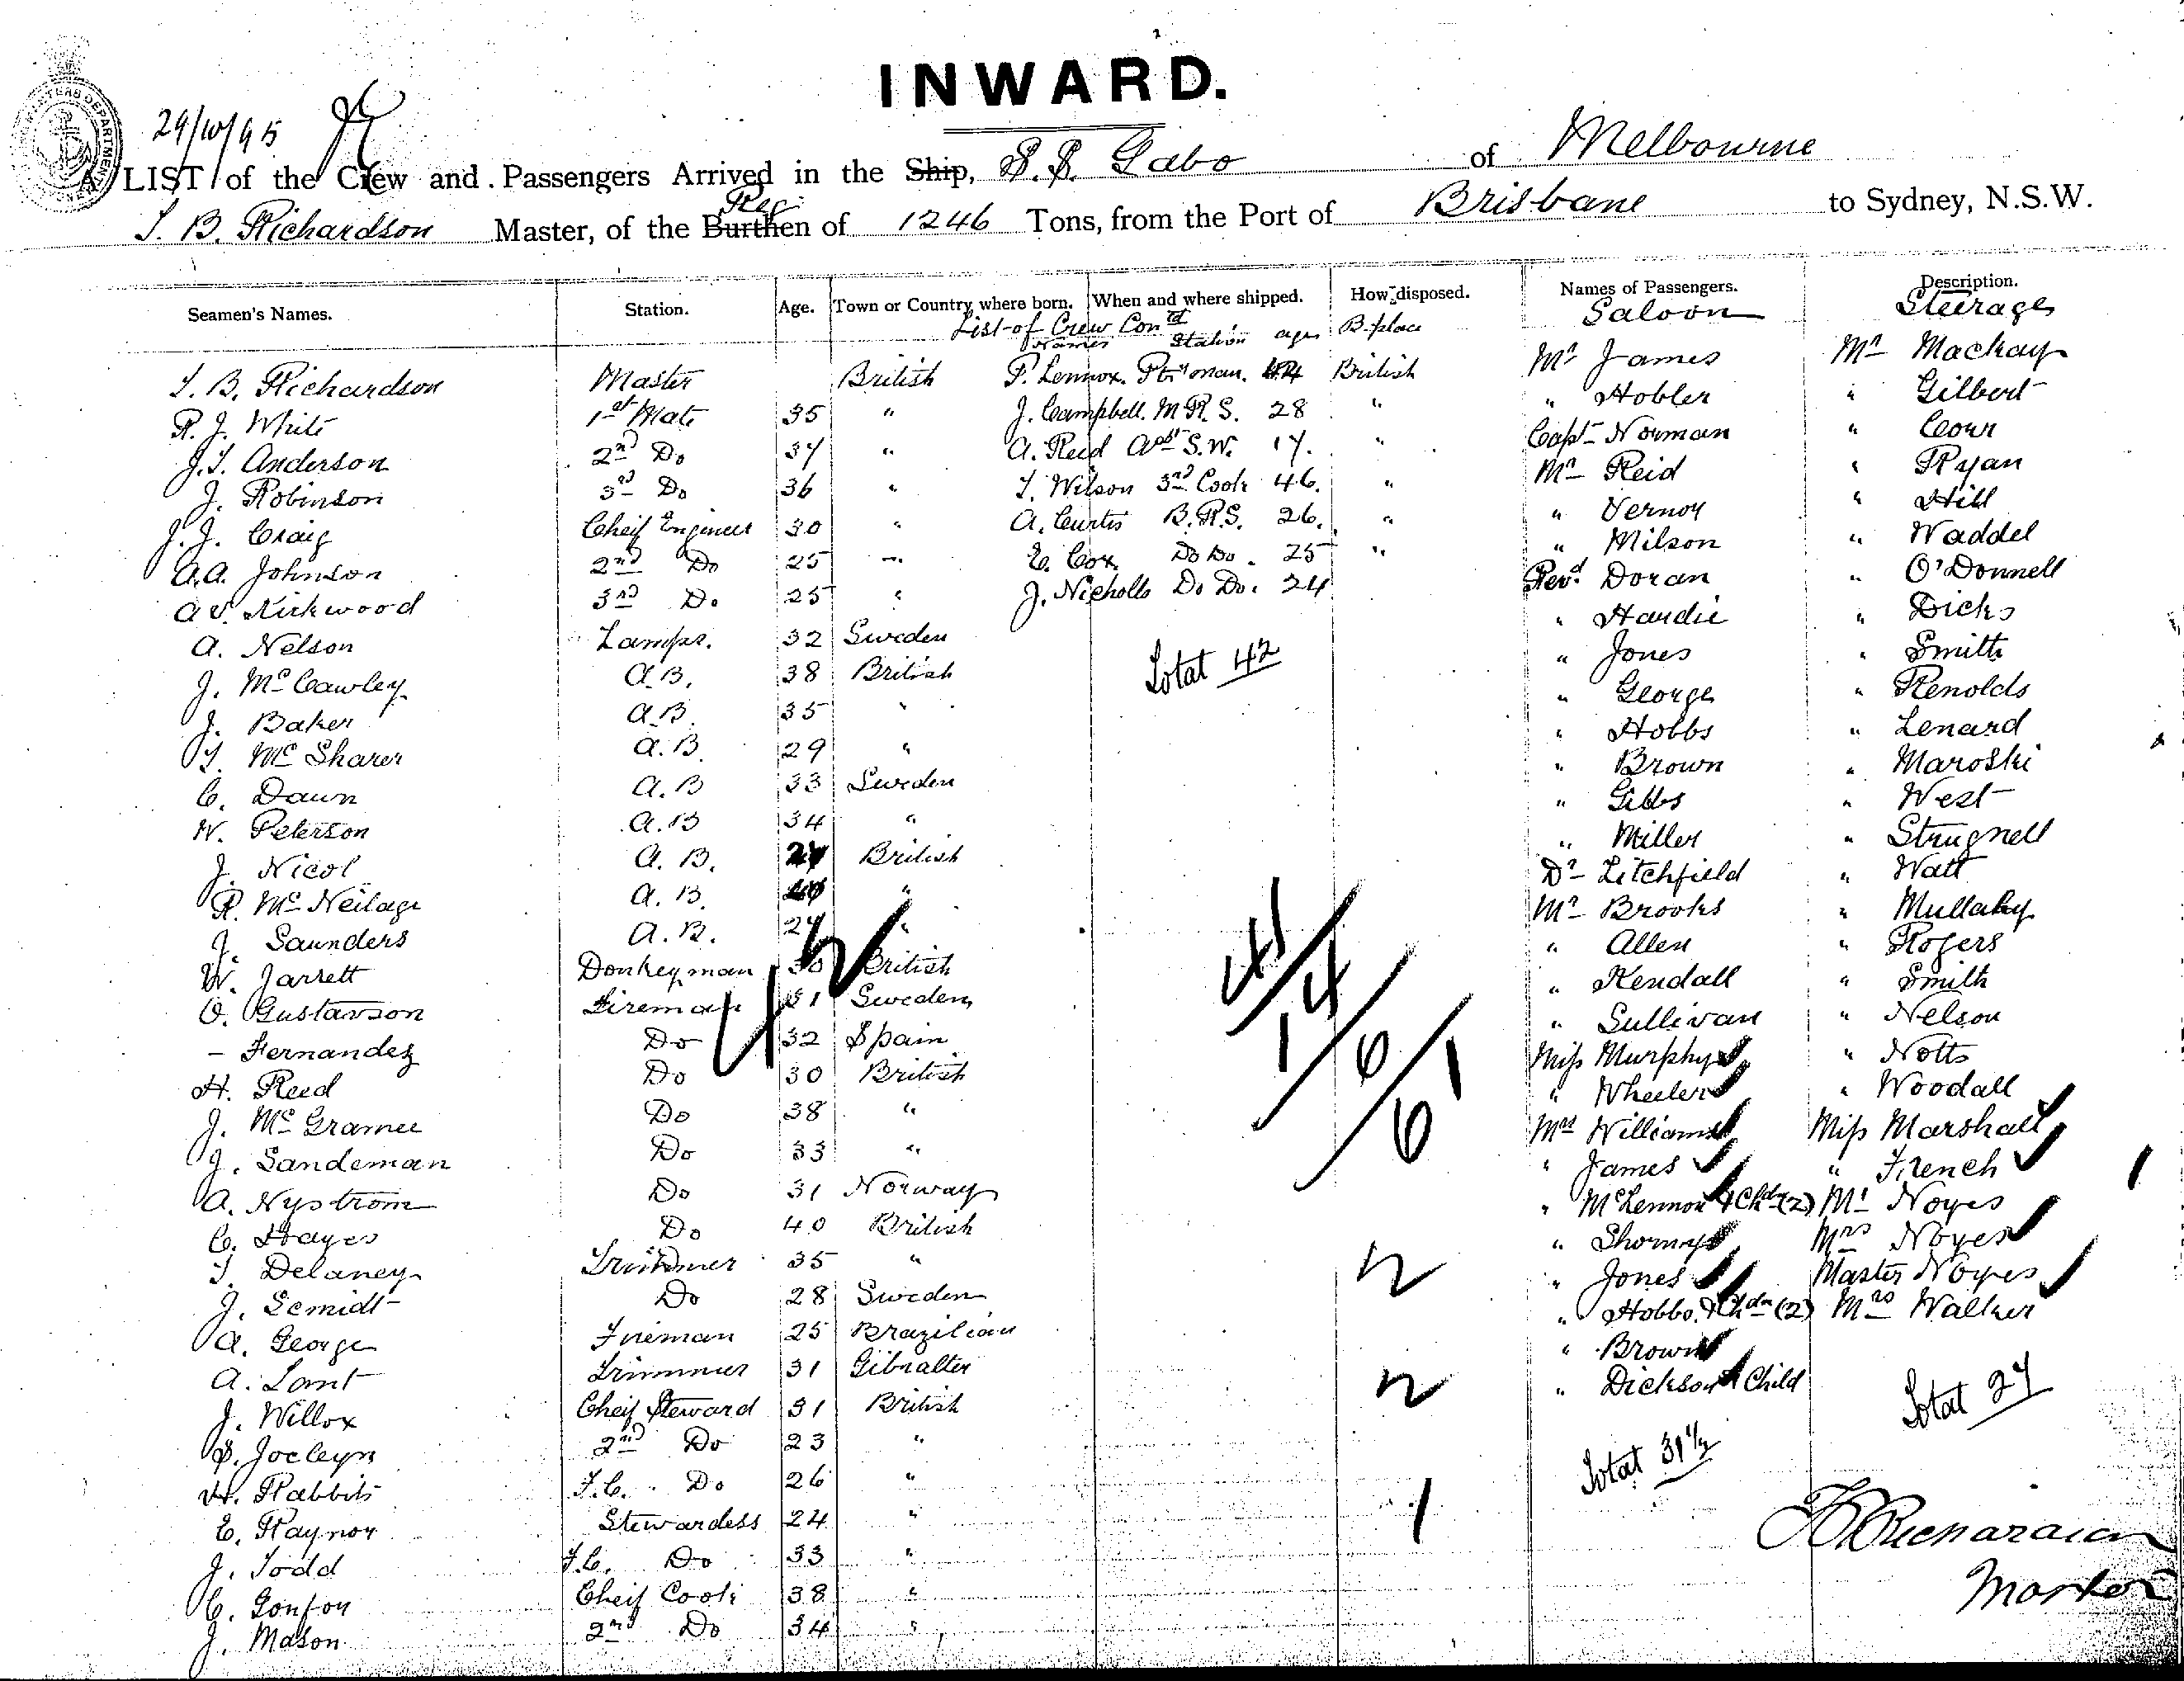 INWARD.
29/10/95
A LIST of the Crew and Passengers Arrived in the Ship, S.S. Gabo of Melbourne
T. B. Richardson Master, of the Burthen Reg. of 1246 Tons, from the Port of Brisbane to Sydney, N.S.W.
Seamen's Names. Station. Age. Town or Country where born. When and where shipped. How disposed. Names of Passengers. Description.
List of Crew Contd Saloon Steerage
Names Station ages B.place
T. B. Richardson Master British P. Lennox. Ptryman. British Mr James Mr Mackay
R. J. White 1st Mate 35 " J. Campbell. M.R.S. 28 " " Hobler " Gilbert
J. T. Anderson 2nd Do 37 " A. Reid Asst S.W. 17. " Capt Norman "
J. Robinson 3rd Do 36 " T. Wilson 3rd Cook 46. " Mr Reid " Ryan
J. J. Craig Cheif Engineer 30 " A. Curtis B.R.S. 26. " " Vernoy " Hill
A. A. Johnson 2nd Do 25 " E. Cox Do Do. 25 " " Milson " Waddel
A V. Kirkwood 3rd Do 25 " J. Nicholls Do Do. 24 Revd Doran " O'Donnell
A. Nelson Lamps. 32 Sweden " Hardie " Dicks
J. McCawley A.B. 38 British Total 42 " Jones " Smith
J. Baker A.B. 35 " " George " Renolds
T. McSharer A.B. 29 " " Hobbs " Lenard
C. Daun A.B 33 Sweden " Brown " Maroski
W. Peterson A.B 34 " " Gibbs " West
J. Nicol A.B. British " Miller " Strugnell
R. McNeilage A.B. " Dr Litchfield " Watt
J. Saunders A.B. 27 " Mr Brooks " Mullahy
W. Jarrett Donkeyman 30 British " Allen " Rogers
O. Gustavson Fireman 31 Sweden " Kendall " Smith
- Fernandez Do 32 Spain " Sullivan " Nelson
H. Reed Do 30 British Miss Murphy " Notts
J. McGramee Do 38 " " Wheeler " Woodall
J. Sandeman Do 33 " Mrs Williams Miss Marshall
A. Nystrom Do 31 Norway " James " French
C. Hayes Do 40 British " McLennon & Chdn (2) Mr Noyes
T. Delaney Trimmer 35 " " Mrs Noyes
J. Semidt Do 28 Sweden " Jones Master Noyes
A. George Fireman 25 Brazilian " Hobbs. & Chdn (2) Mrs Walker
A. Lont Trimmer 31 Gibralter " Brown
J. Willox Cheif Steward 31 British " Dickson & Child
S. Jocleyn 2nd Do 23 " Total 27
H. Rabbits F.C. Do 26 " Total 31½
E. Raynor Stewardess 24 "
J. Todd F.C. Do 33 "
C. Gonfoy Cheif Cook 38 "
J. Mason 2nd Do 34 "
42
41/14/6/1
6
2
2
1
1
T B Richardson
Master